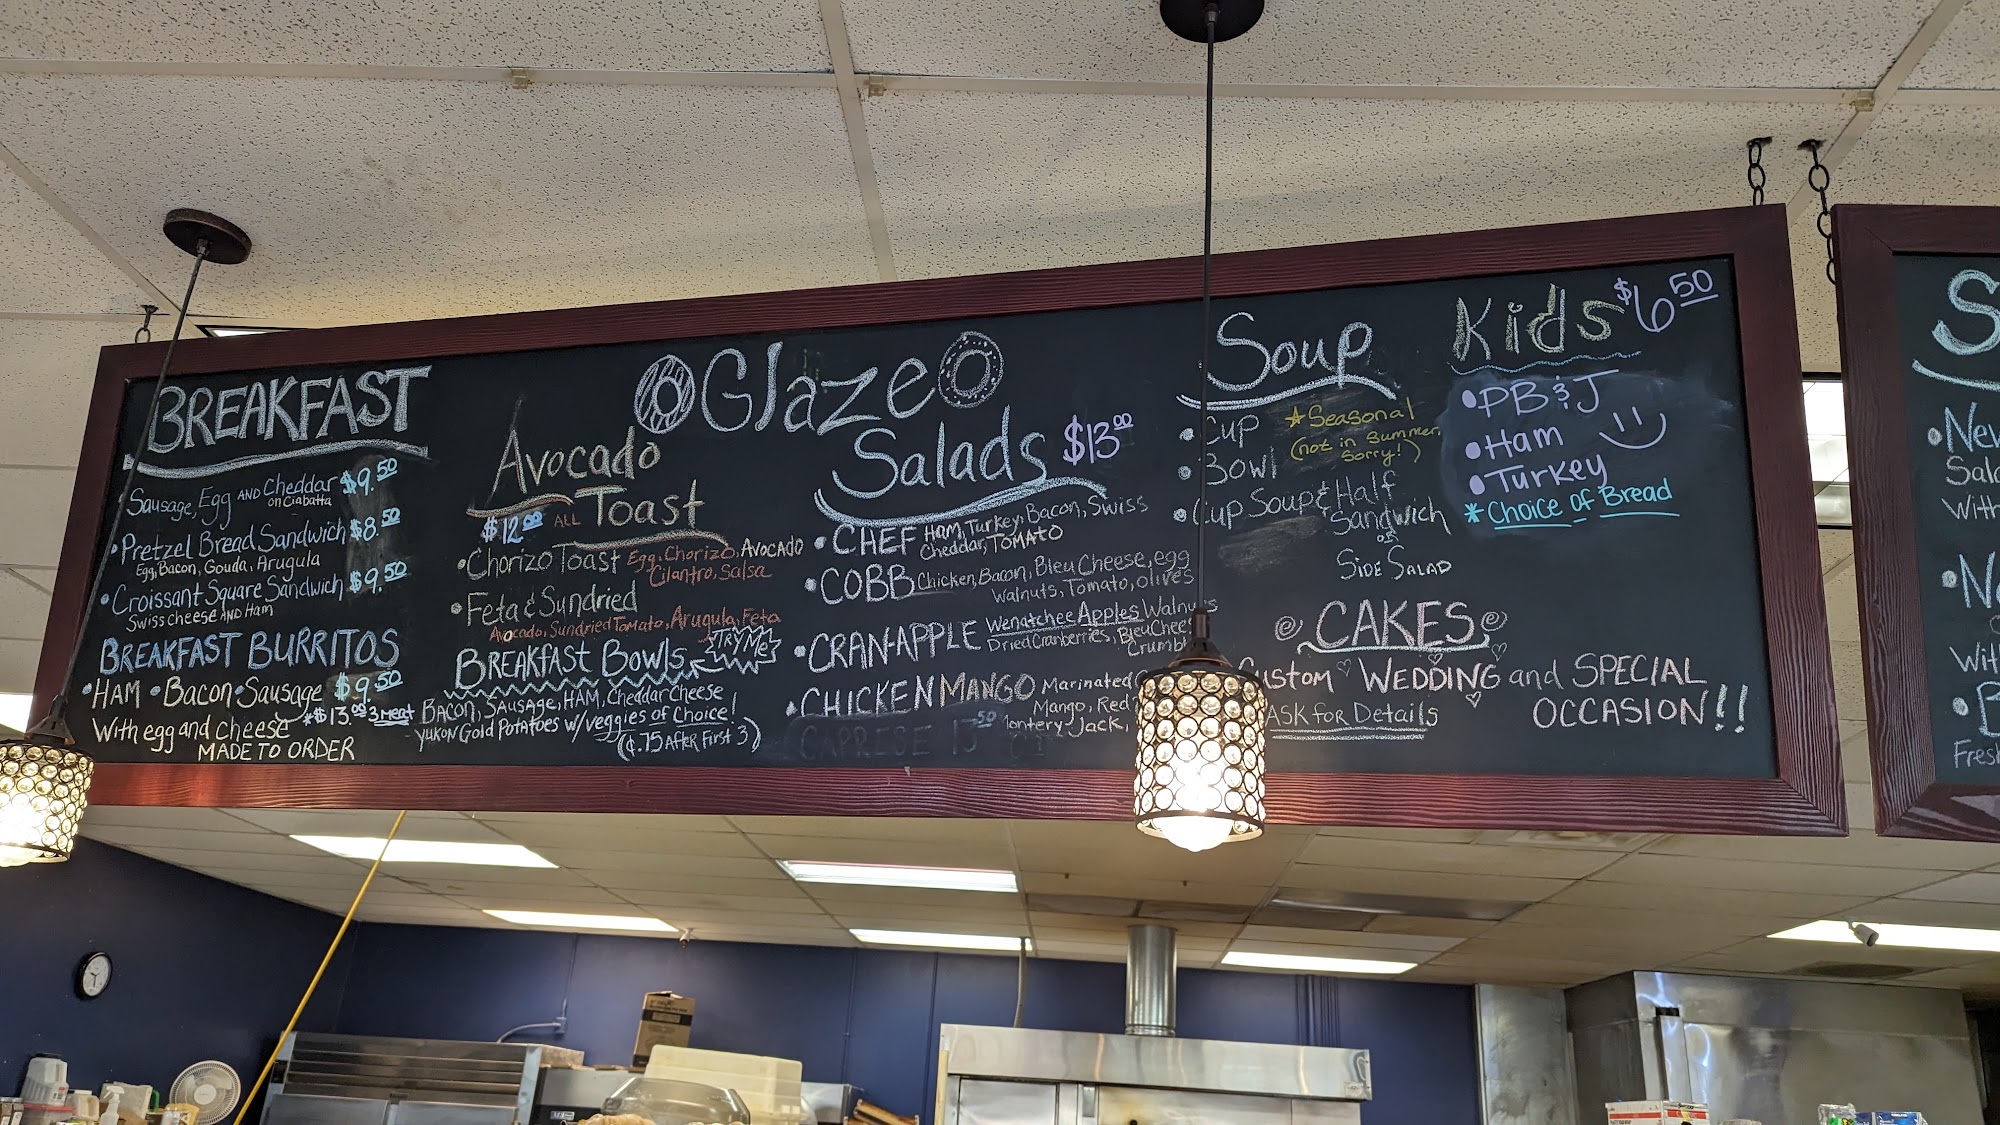 BREAKFAST
Sausage, Egg AND Cheddar $9.50
on Ciabatta
Pretzel Bread Sandwich $8.50
Egg, Bacon, Gouda, Arugula
Croissant Square Sandwich $9.50
Swiss cheese AND Ham
BREAKFAST BURRITOS
HAM • Bacon • Sausage $9.50
With egg and cheese *$13.00 3 Meat
MADE TO ORDER
Glaze
Avocado
Toast
$12.00 ALL
Chorizo Toast Egg, Chorizo, Avocado
Cilantro, Salsa
Feta & Sundried
Avocado, Sundried Tomato, Arugula, Feta
BREAKFAST BOWLS TRY ME
BACON, SAUSAGE, HAM, Cheddar Cheese
YUKON Gold POTATOES w/ veggies of Choice!
($.75 AFTER First 3)
Salads $13.00
CHEF HAM, Turkey, Bacon, Swiss
Cheddar, TOMATO
COBB Chicken, Bacon, Bleu Cheese, egg
Walnuts, Tomato, olives
CRAN-APPLE Wenatchee Apples Walnuts
Dried Cranberries, Bleu Chees
Crumbl
CHICKEN MANGO Marinated
Mango, Red
Montery Jack,
CAPRESE 13.50
Soup
Cup
Bowl
★ Seasonal
(not in summer,
sorry!)
Cup Soup & Half
Sandwich
or
SIDE SALAD
Kids $6.50
PB & J
Ham
Turkey
* Choice of Bread
CAKES
Custom WEDDING and SPECIAL
OCCASION!!
ASK for Details
S
New
Sala
With
N
With
B
Fresh